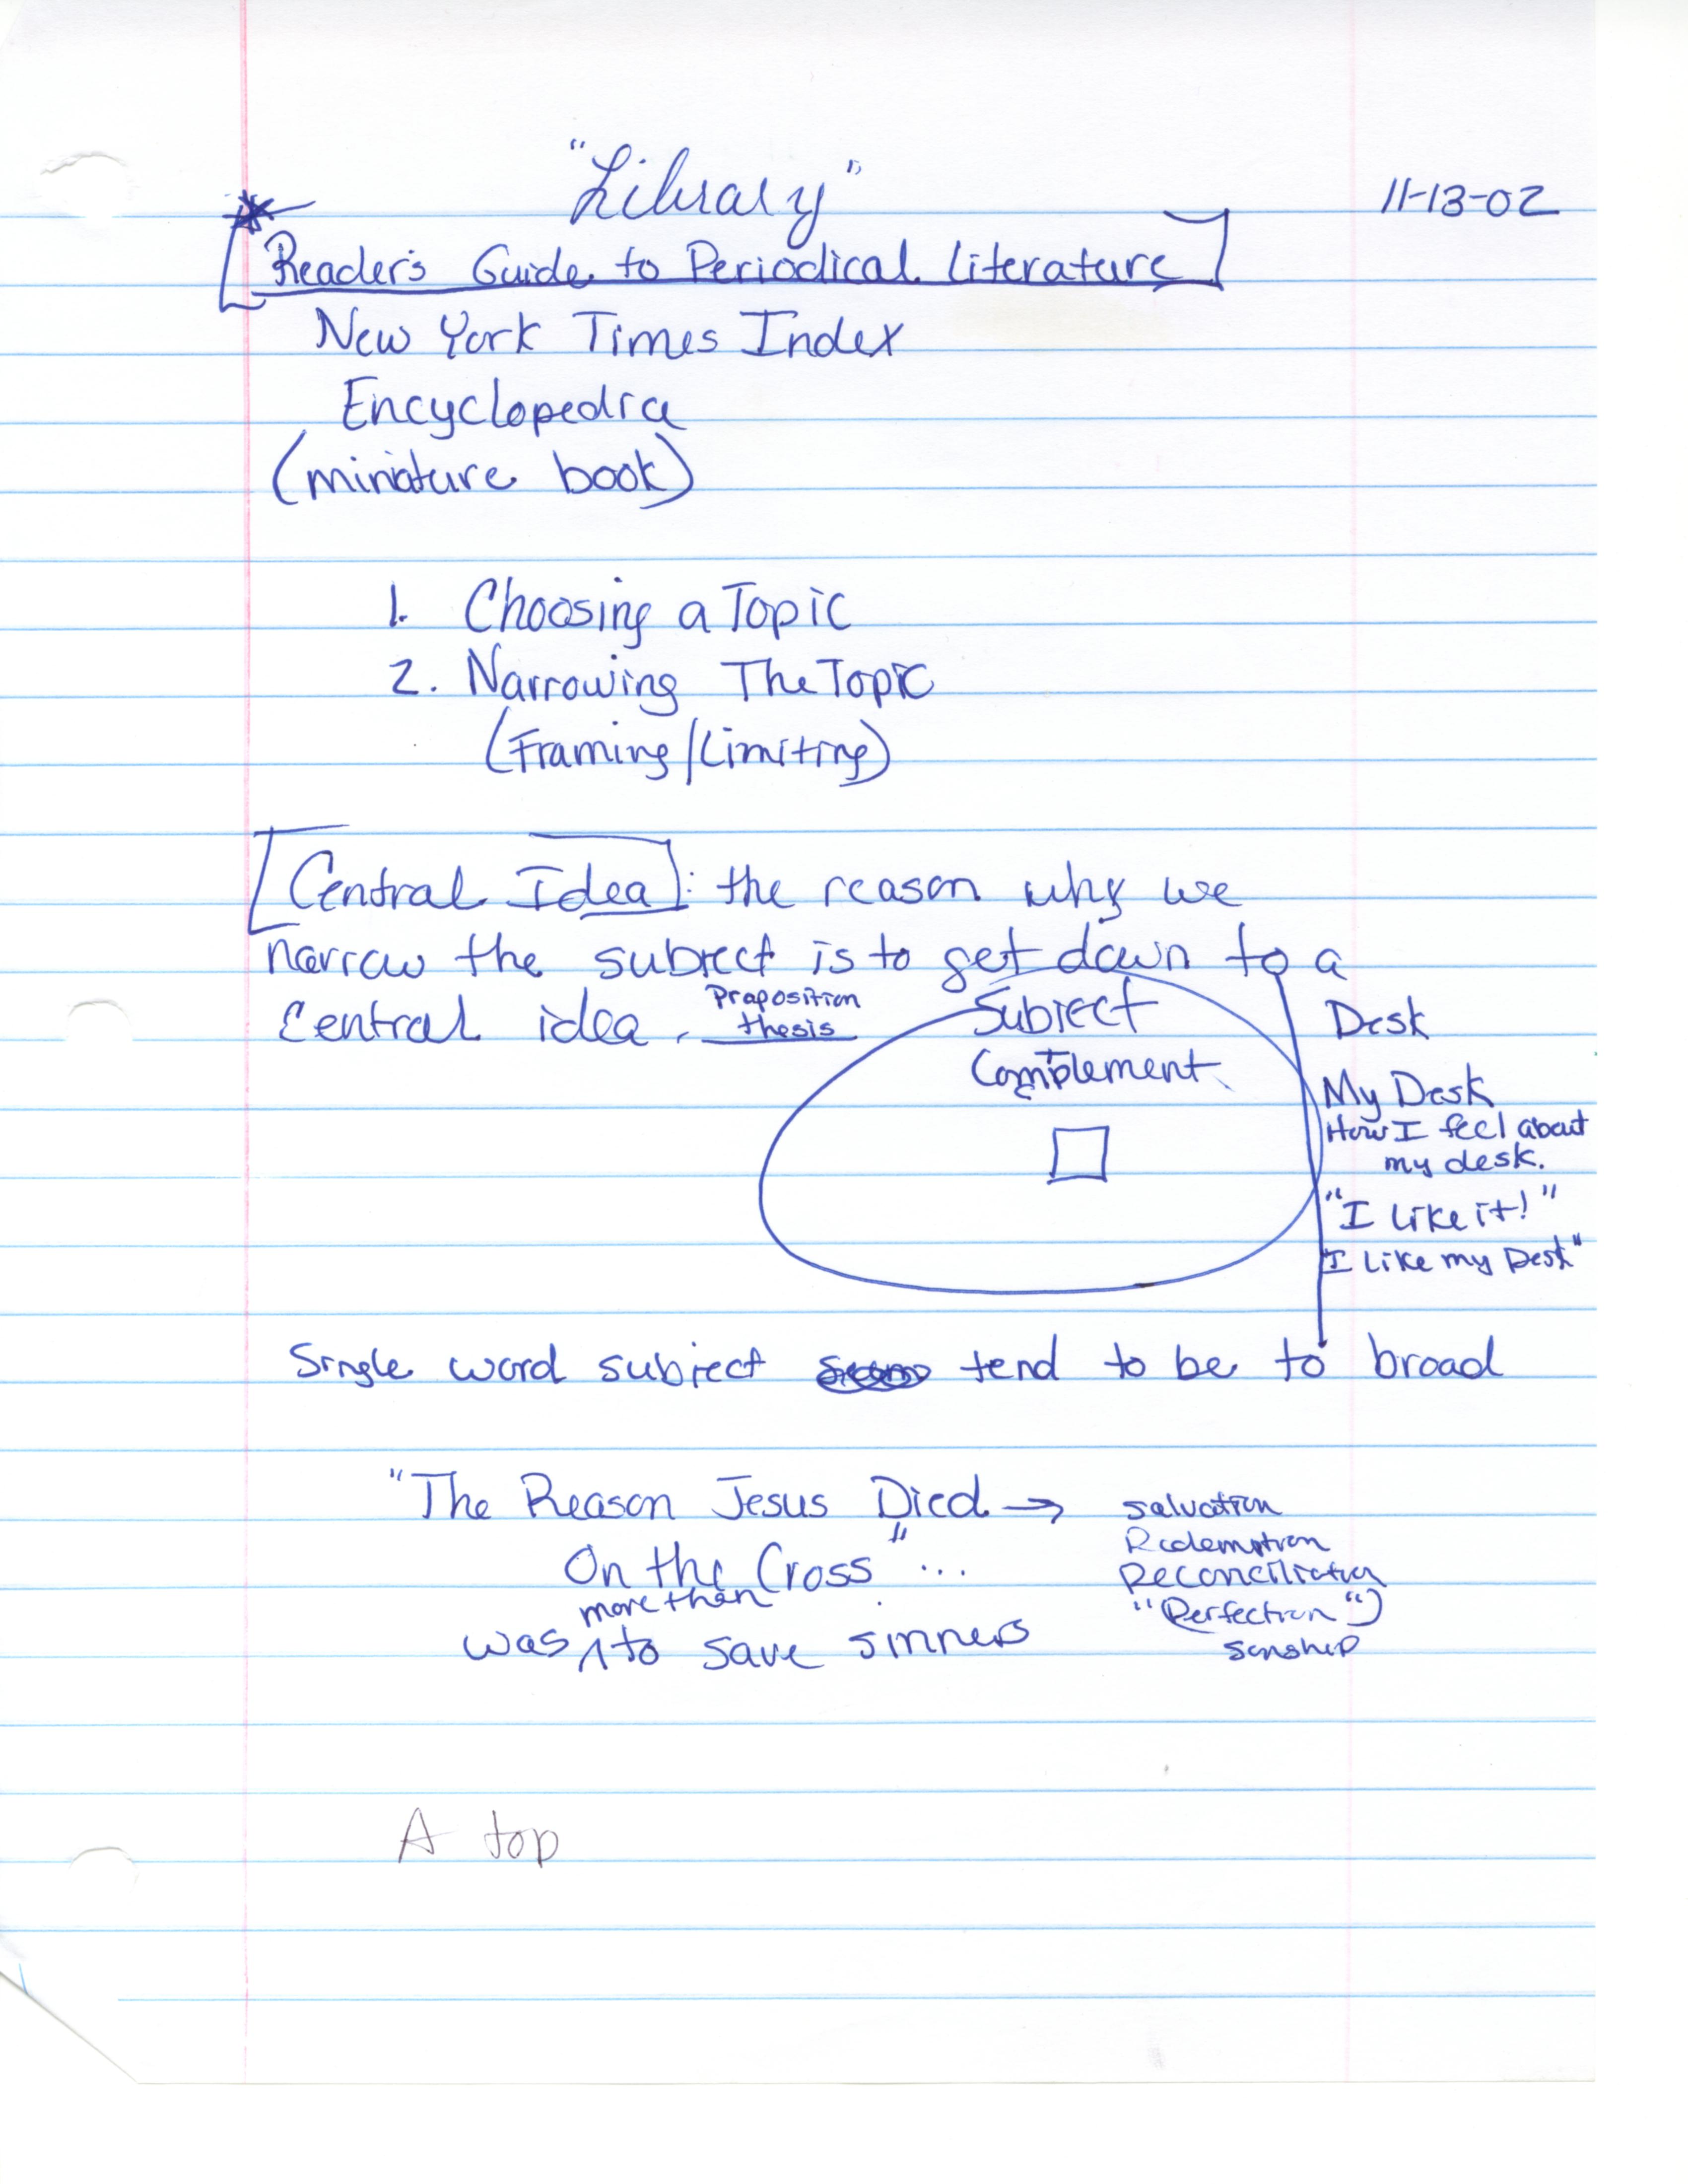 "Library"
11-13-02
* [Reader's Guide to Periodical Literature]
New York Times Index
Encyclopedia
(miniature book)
1. Choosing a Topic
2. Narrowing The Topic
(Framing/Limiting)
[Central Idea]: the reason why we
narrow the subject is to get down to a
Central idea.
Proposition
thesis
Subject
+
Complement
Desk
My Desk
How I feel about
my desk.
"I like it!"
I like my Desk"
Single word subject tend to be to broad
"The Reason Jesus Died →
On the Cross" ...
more than
was ^ to save sinners
salvation
Redemption
Reconciliation
"(Perfection")
sonship
A top